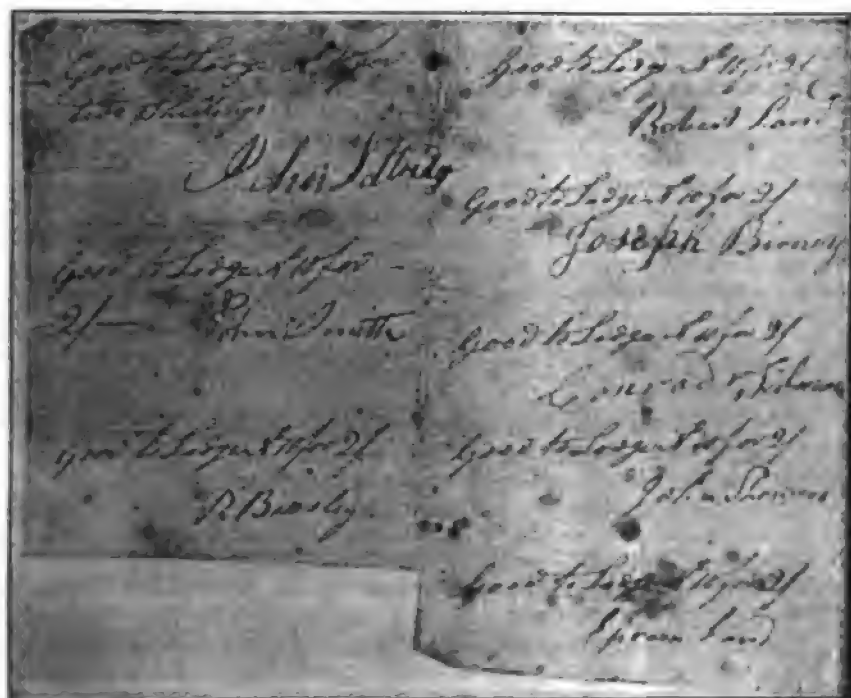 Good to Lodge N 10 for
two Shillings
John
Good to Lodge N 10 for
2/— John Smith
good to Lodge N 10 for 2/
R Beasley
Good to Lodge N 10 for 2/
Robert Land
Good to Lodge N 10 for 2/
Joseph Birney
Good to Lodge N 10 for 2/
Conrad Filman
Good to Lodge N 10 for 2/
John
Good to Lodge N 10 for 2/
Land